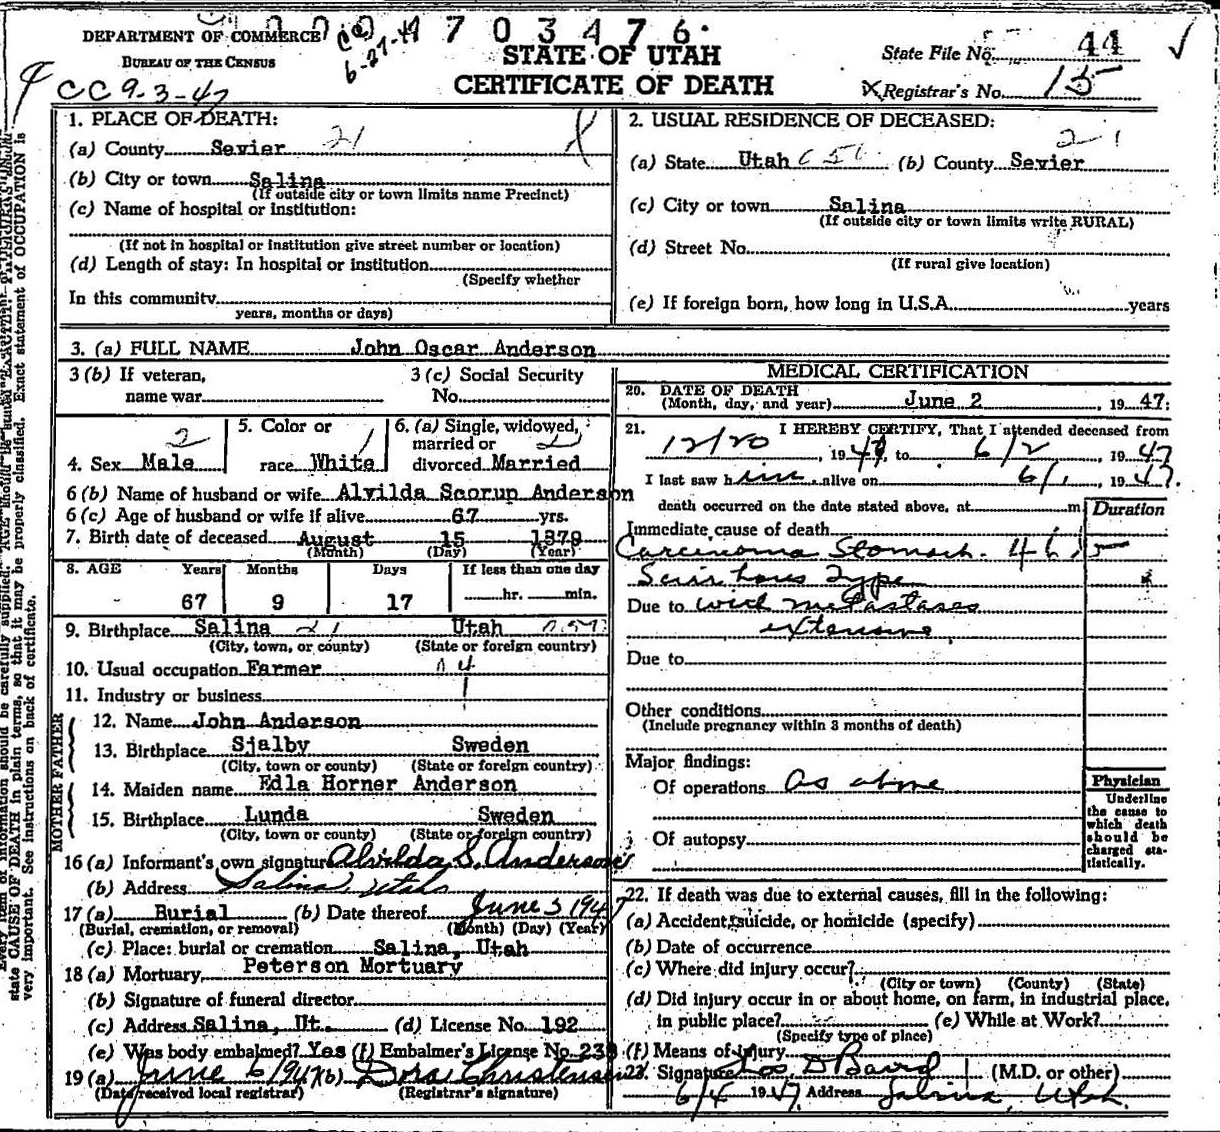 DEPARTMENT OF COMMERCE
BUREAU OF THE CENSUS
6-27-47
703476
STATE OF UTAH
CERTIFICATE OF DEATH
State File No. 44
X Registrar's No. 15
CC 9-3-47
1. PLACE OF DEATH:
(a) County Sevier 21
(b) City or town Salina
(If outside city or town limits name Precinct)
(c) Name of hospital or institution:
(If not in hospital or institution give street number or location)
(d) Length of stay: In hospital or institution
(Specify whether
In this community
years, months or days)
2. USUAL RESIDENCE OF DECEASED:
21
(a) State Utah (b) County Sevier
(c) City or town Salina
(If outside city or town limits write RURAL)
(d) Street No.
(If rural give location)
(e) If foreign born, how long in U.S.A. years
3. (a) FULL NAME John Oscar Anderson
3 (b) If veteran,
name war
3 (c) Social Security
No.
4. Sex Male 2
5. Color or
race White 1
6. (a) Single, widowed,
married or
divorced Married
6 (b) Name of husband or wife Alvilda Scorup Anderson
6 (c) Age of husband or wife if alive 67 yrs.
7. Birth date of deceased August 15 1879
(Month) (Day) (Year)
8. AGE Years Months Days If less than one day
67 9 17 hr. min.
9. Birthplace Salina 21 Utah
(City, town, or county) (State or foreign country)
10. Usual occupation Farmer
11. Industry or business
FATHER
12. Name John Anderson
13. Birthplace Sjalby Sweden
(City, town or county) (State or foreign country)
MOTHER
14. Maiden name Edla Horner Anderson
15. Birthplace Lunda Sweden
(City, town or county) (State or foreign country)
16 (a) Informant's own signature Alvilda S. Anderson
(b) Address Salina, Utah
17 (a) Burial (b) Date thereof June 5 1947
(Burial, cremation, or removal) (Month) (Day) (Year)
(c) Place: burial or cremation Salina, Utah
18 (a) Mortuary Peterson Mortuary
(b) Signature of funeral director
(c) Address Salina, Ut. (d) License No. 192
(e) Was body embalmed? Yes (f) Embalmer's License No. 238
19 (a) June 6 1947 (b) Dora Christensen
(Date received local registrar) (Registrar's signature)
MEDICAL CERTIFICATION
20. DATE OF DEATH
(Month, day, and year) June 2, 1947:
21. I HEREBY CERTIFY, That I attended deceased from
12/20, 19 to 6/2, 1947
I last saw him alive on 6/1, 1947.
death occurred on the date stated above, at m
Duration
Immediate cause of death
Carcinoma Stomach. 46 15
Scirrhous Type
Due to with metastases
extensive
Due to
Other conditions
(Include pregnancy within 3 months of death)
Major findings:
Of operations As above
Of autopsy
Physician
Underline
the cause to
which death
should be
charged sta-
tistically.
22. If death was due to external causes, fill in the following:
(a) Accident, suicide, or homicide (specify)
(b) Date of occurrence
(c) Where did injury occur?
(City or town) (County) (State)
(d) Did injury occur in or about home, on farm, in industrial place,
in public place? (e) While at Work?
(Specify type of place)
(f) Means of injury
23. Signature (M.D. or other)
6/4 1947 Address Salina, Utah.
state CAUSE OF DEATH in plain terms, so that it may be properly classified. Exact statement of OCCUPATION is
very important. See instructions on back of certificate.